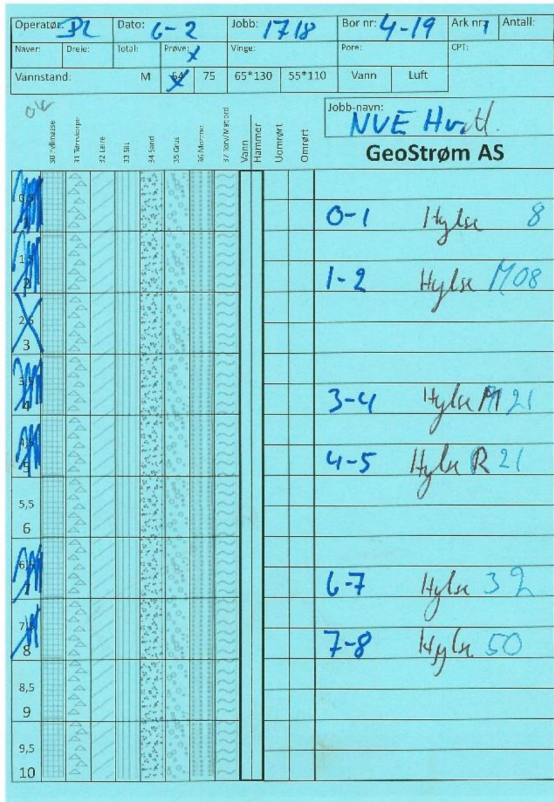 Operatør: PL Dato: 6-2 Jobb: 1718 Bor nr: 4-19 Ark nr: 1 Antall:
Naver: Dreie: Total: Prøve: X Vinge: Pore: CPT:
Vannstand: M 54 75 65*130 55*110 Vann Luft
OK
Jobb-navn:
NVE
GeoStrøm AS
30 Fyllmasse 31 Tørrskorpe 32 Leire 33 Silt 34 Sand 35 Grus 36 Morene 37 Torv/Matjord Vann Hammer Uomrørt Omrørt
0,5
1
0-1 Hylse 8
1,5
2
1-2 Hylse M08
2,5
3
3,5
4
3-4 Hylse M21
4,5
5
4-5 Hylse R 21
5,5
6
6,5
6-7 Hylse 32
7,5
8
7-8 Hylse 50
8,5
9
9,5
10